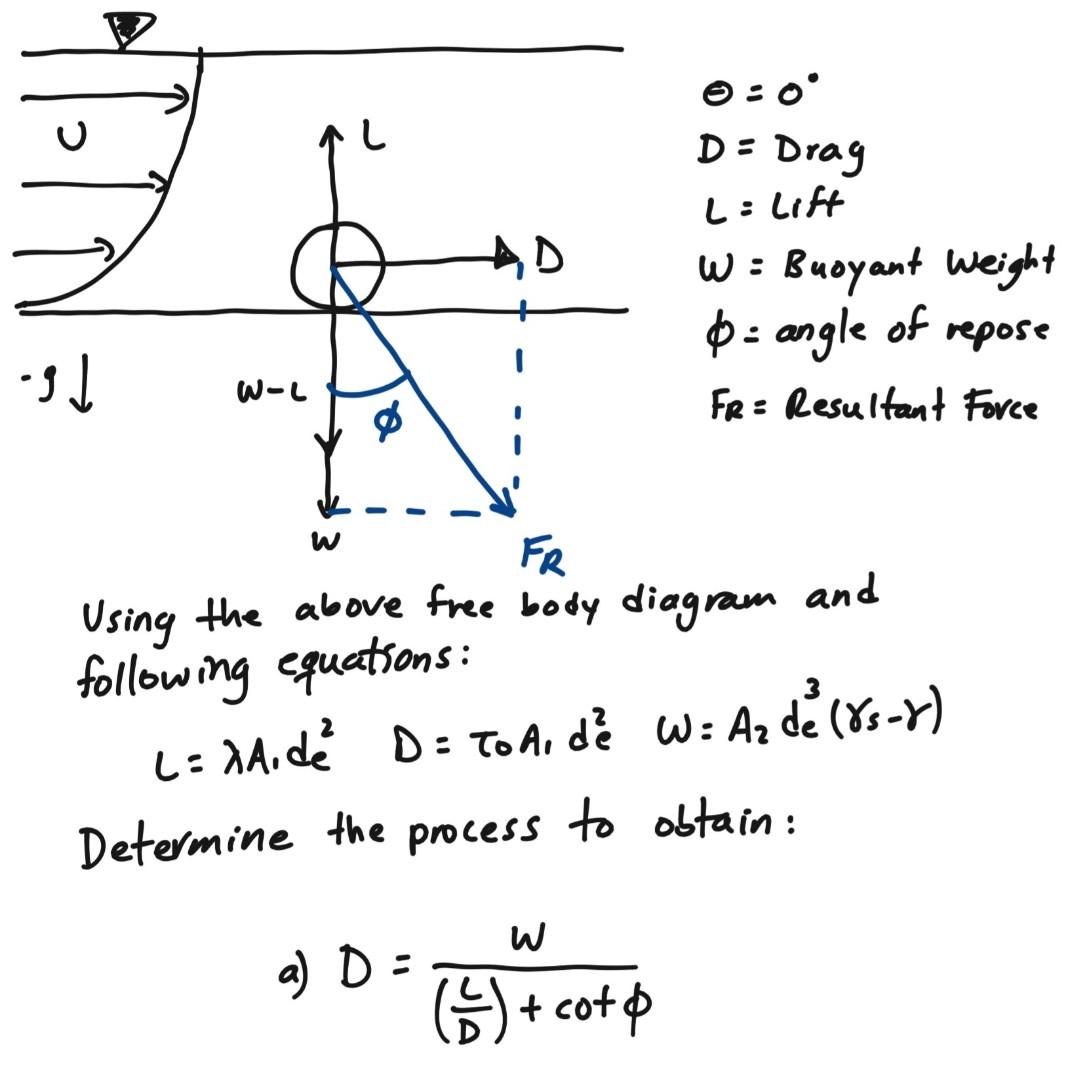 U
L
D
-g
W-L
ϕ
W
FR
Θ = 0°
D = Drag
L = Lift
W = Buoyant Weight
ϕ = angle of repose
FR = Resultant Force
Using the above free body diagram and
following equations:
L = λA₁de² D = τ₀A₁de² W = A₂de³(γs-γ)
Determine the process to obtain:
a) D = W / ((L/D) + cot ϕ)